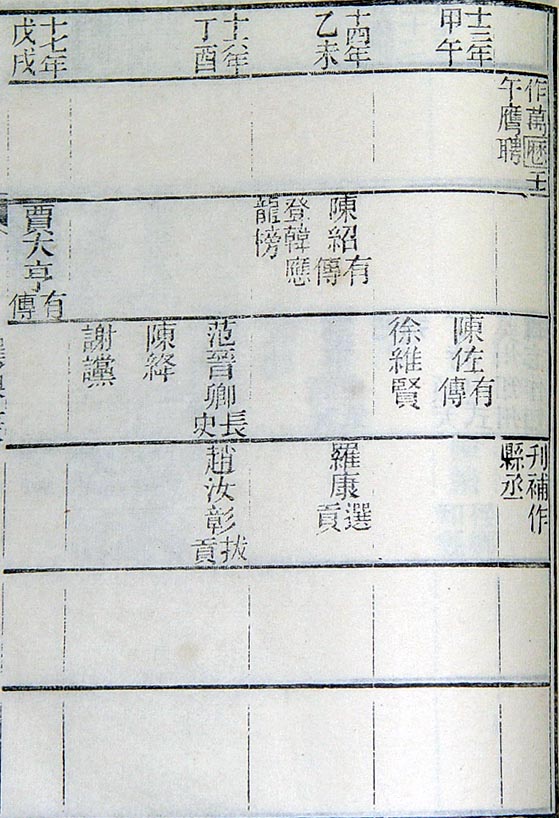 十三年
甲午
十四年
乙未
十六年
丁酉
十七年
戊戌
作萬曆壬
午膺聘
陳紹有傳
登韓應
龍榜
賈大亨有傳
陳佐有傳
徐維賢
范晉卿長史
陳絳
謝讜
刋補作
縣丞
羅康選貢
趙汝彰拔貢